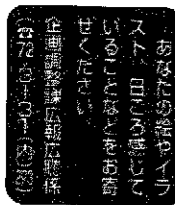 あなたの絵やイラ
スト、日ごろ感じて
いることなどをお寄
せください。
企画調整課広報広聴係
☎72-3131内